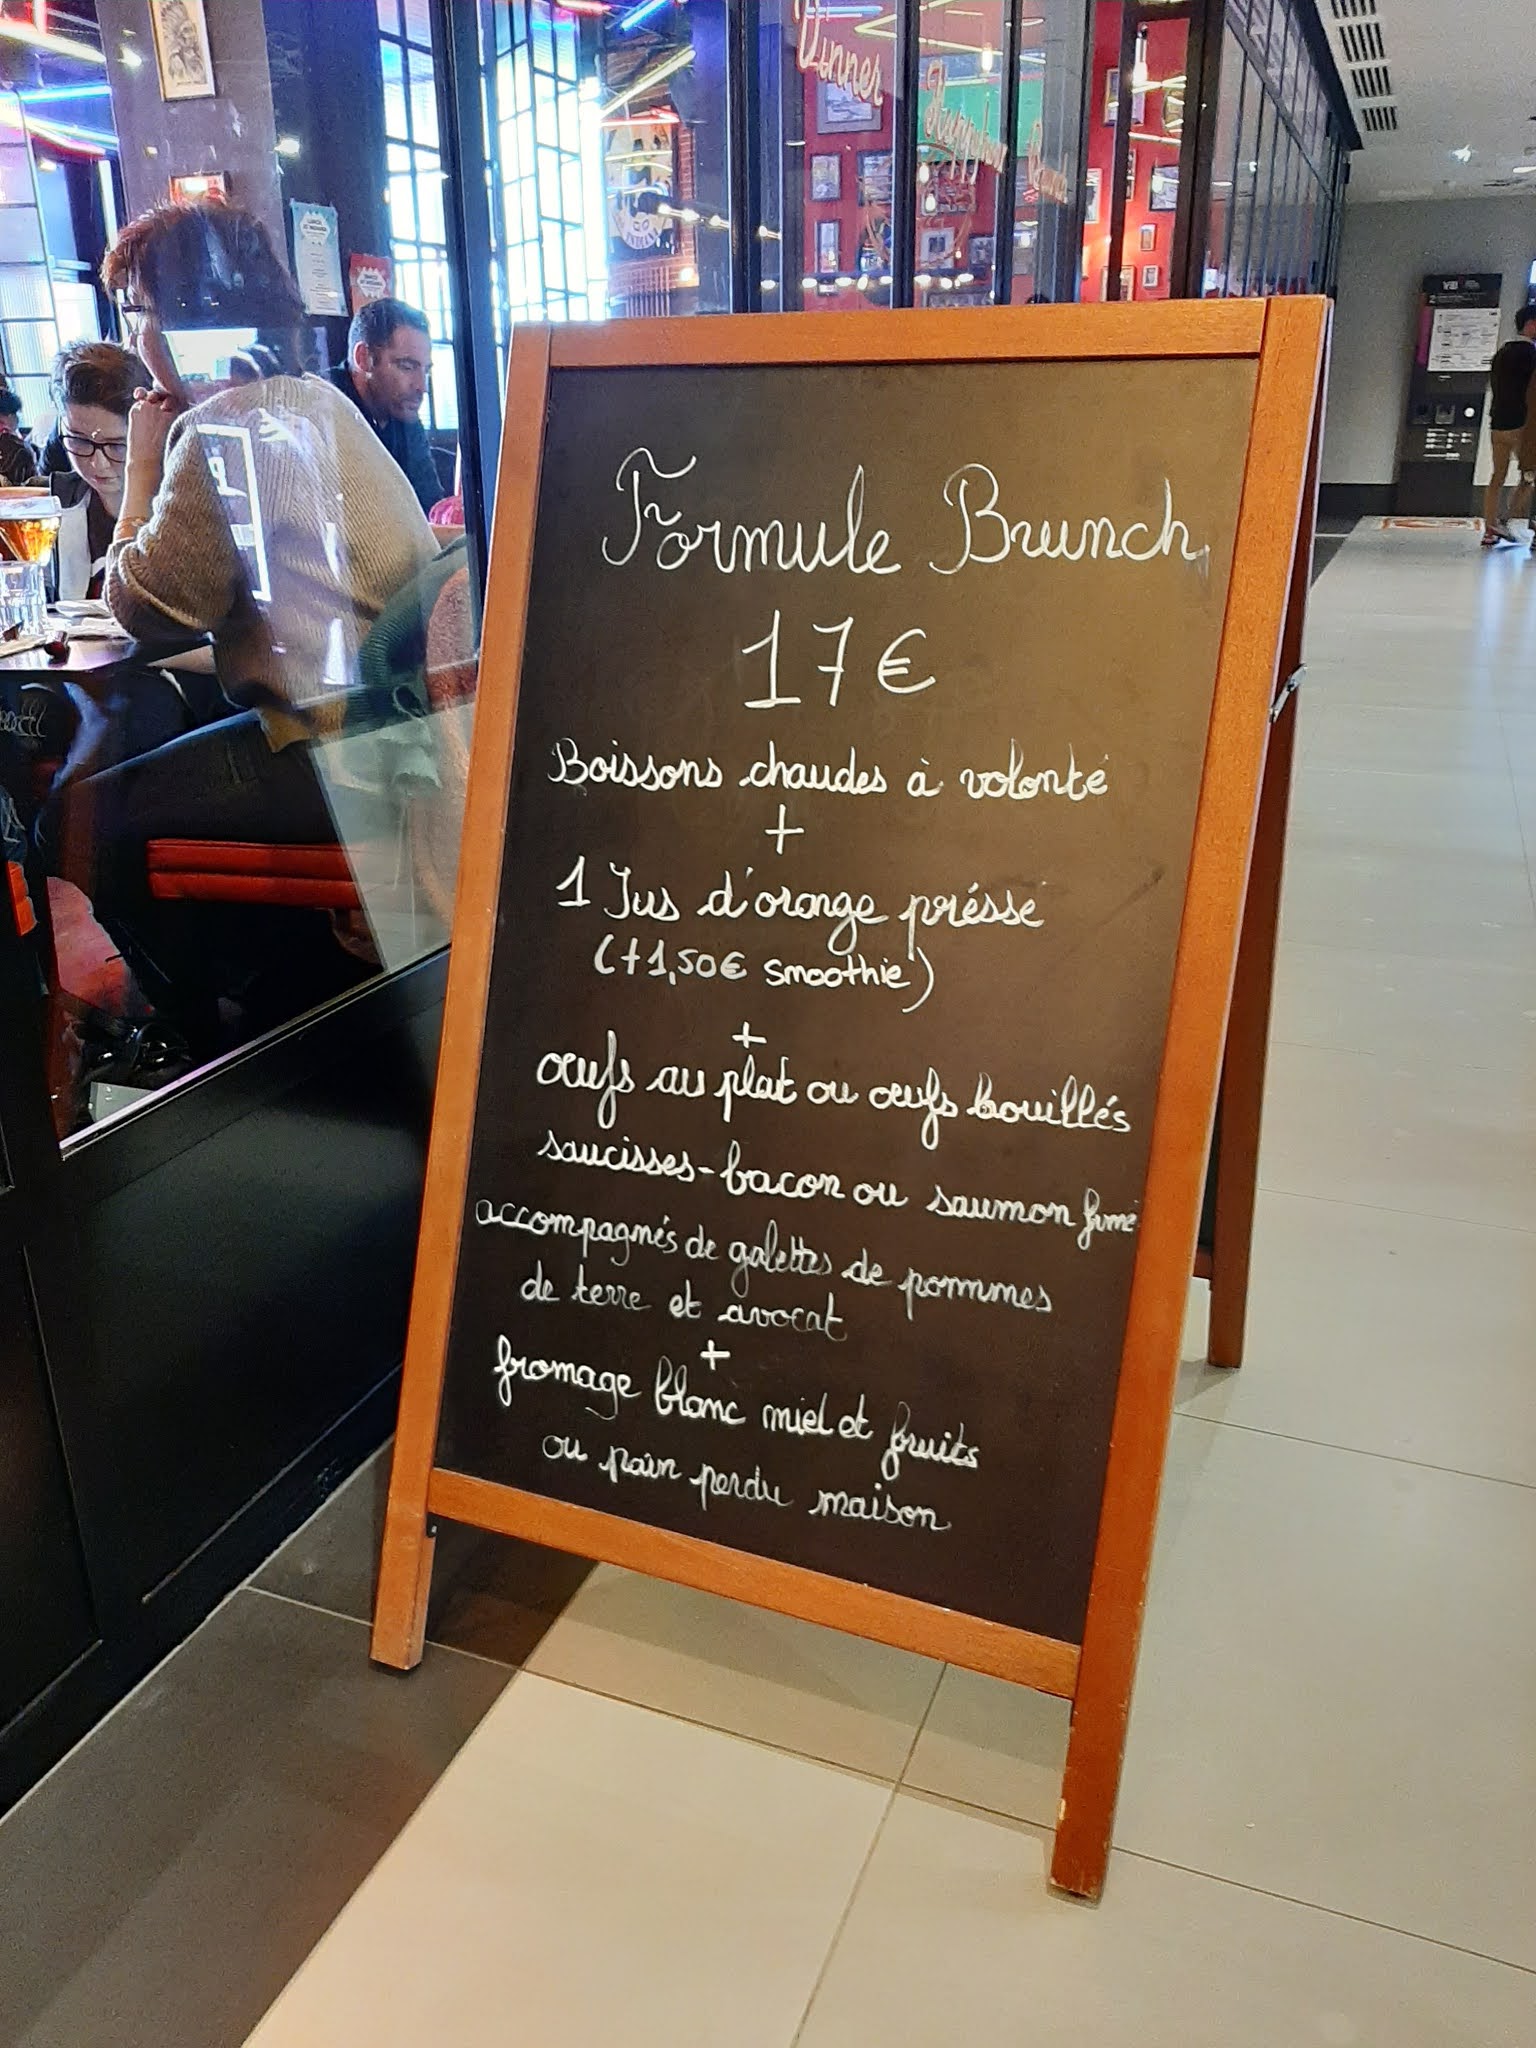 Dinner
Formule Brunch
17€
Boissons chaudes à volonté
+
1 Jus d'orange présse
(+1,50€ smoothie)
+
œufs au plat ou œufs brouillés
saucisses-bacon ou saumon fumé
accompagnés de galettes de pommes
de terre et avocat
+
fromage blanc miel et fruits
ou pain perdu maison